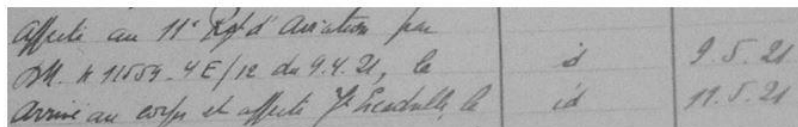 affecté au 11e Rgt d'aviation par
D.M. N° 11559-4E/12 du 9.4.21, le id 9.5.21
arrivé au corps et affecté 7e Escadrille, le id 11.5.21